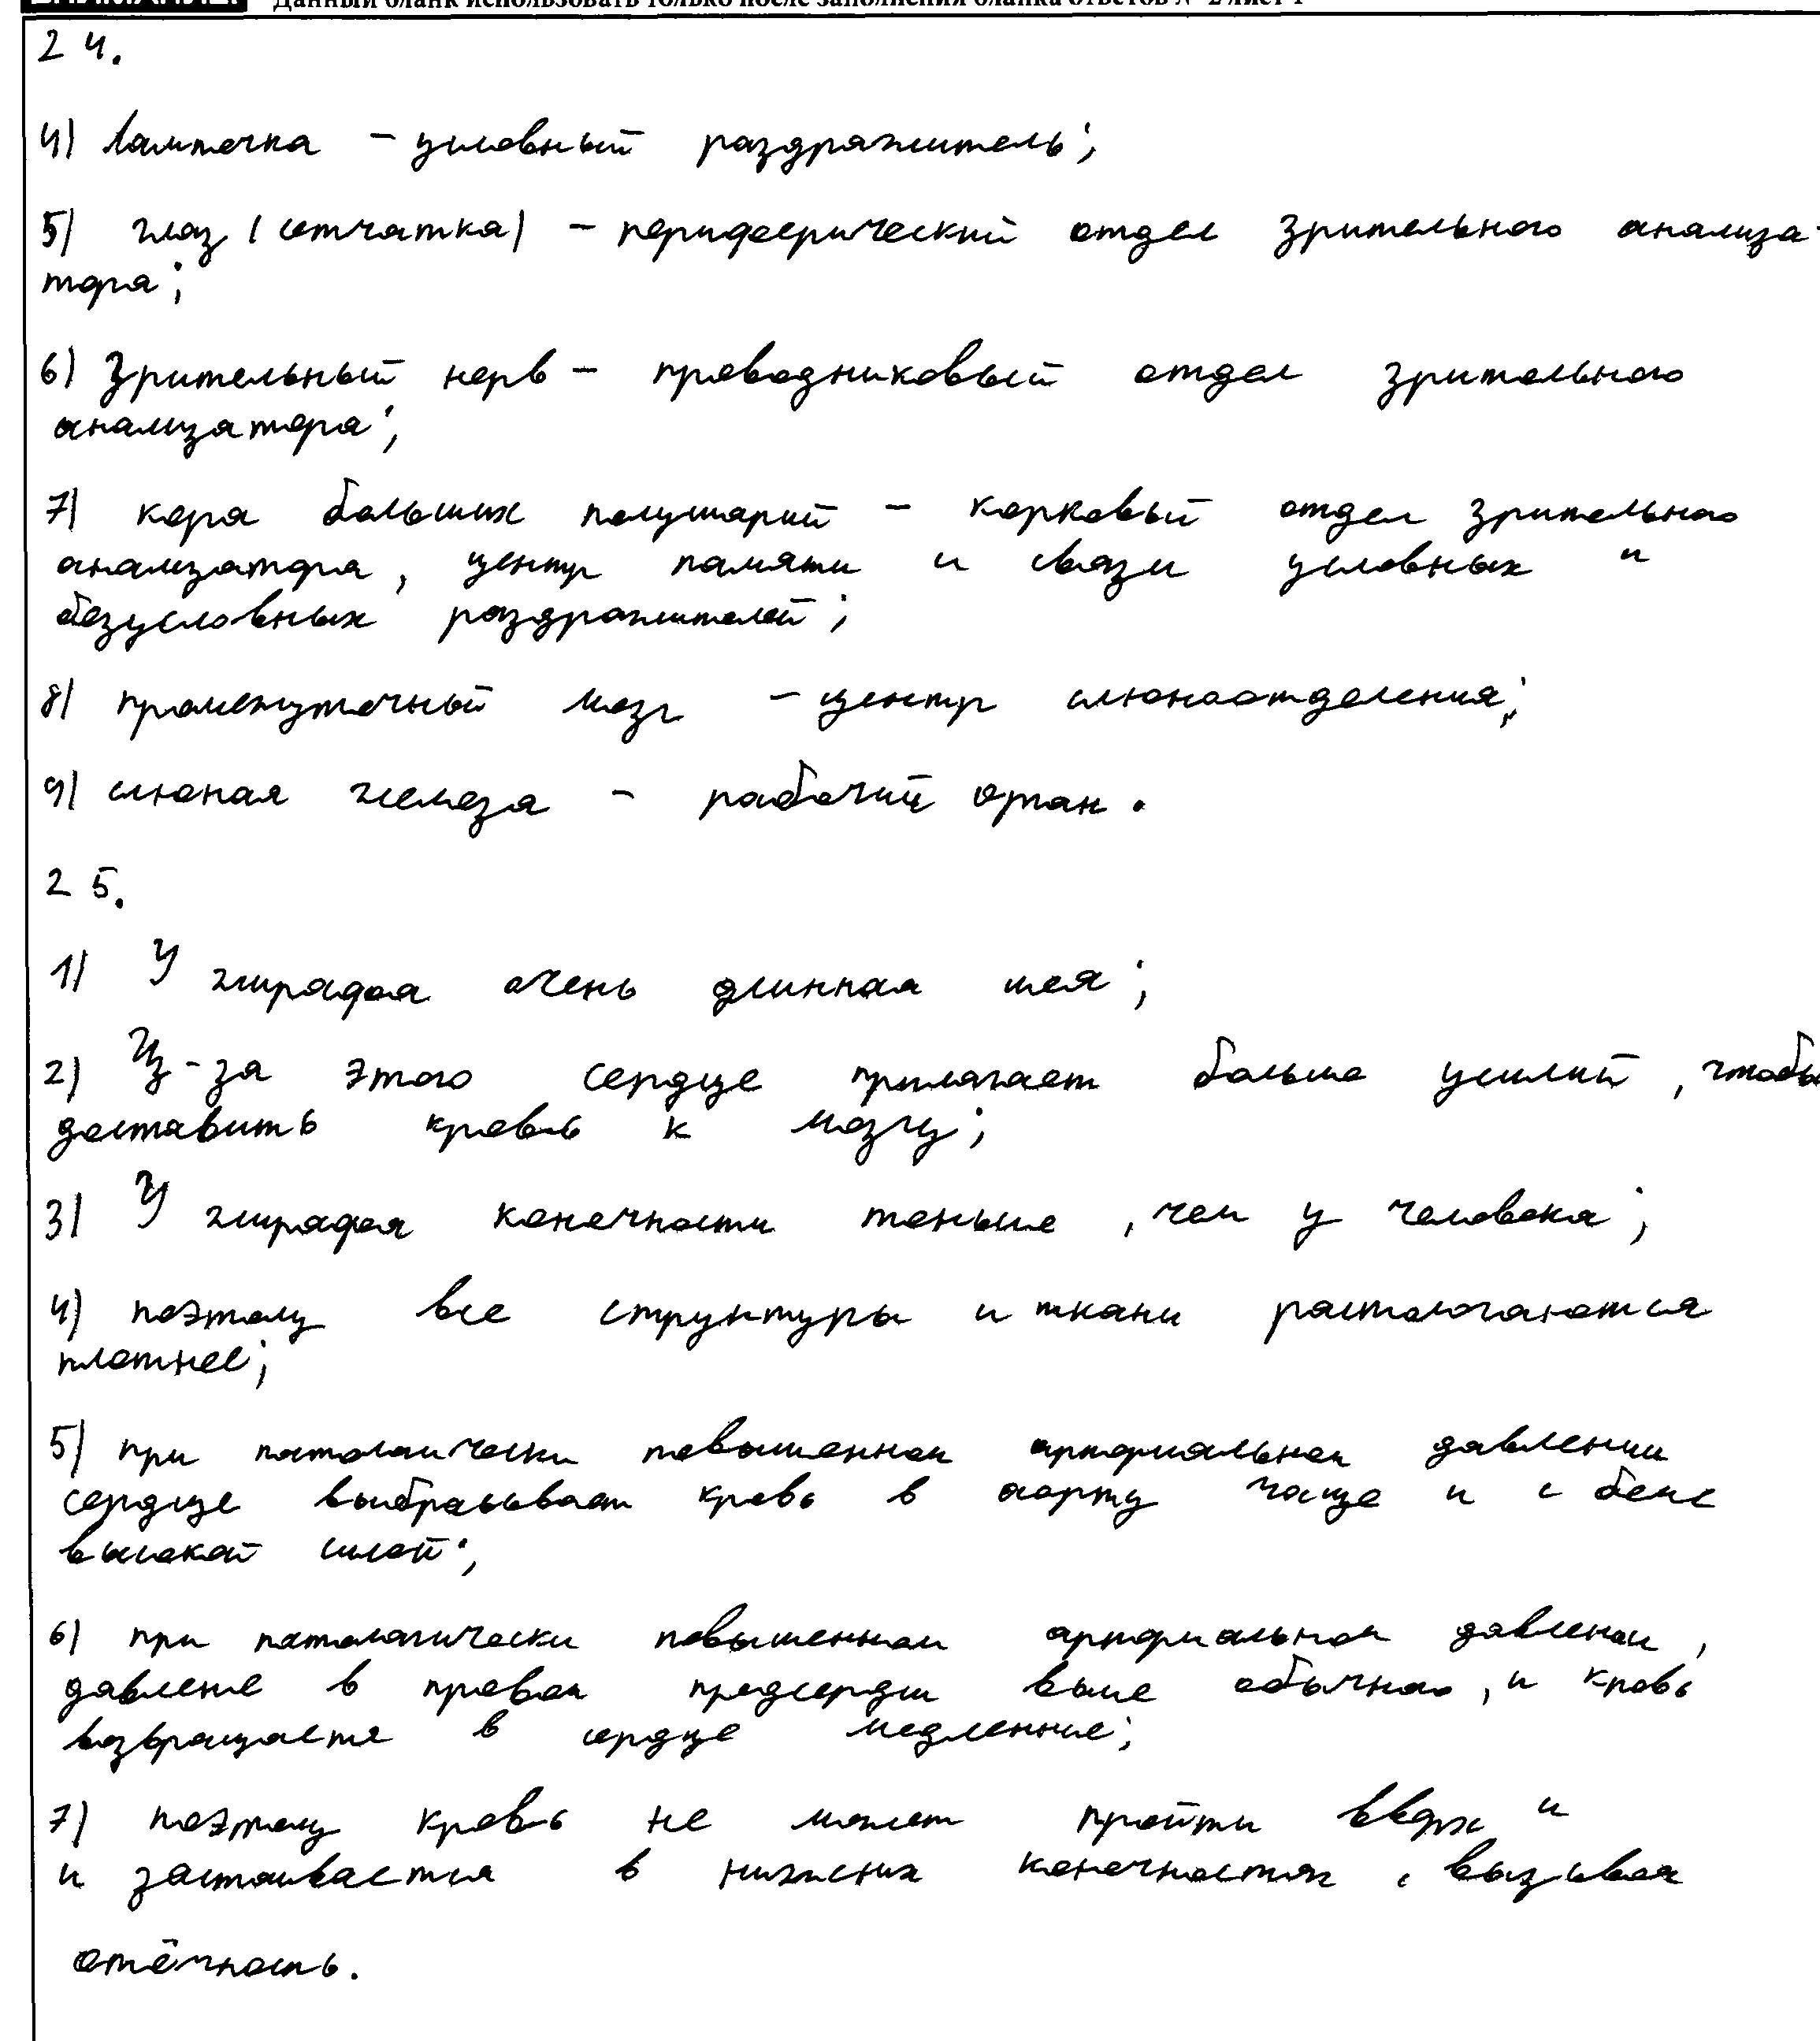 Данный бланк использовать только после заполнения бланка ответов № 2 лист 1
24.
4) лампочка - условный раздражитель;
5) глаз (сетчатка) - периферический отдел зрительного анализа-
тора;
6) Зрительный нерв - проводниковый отдел зрительного
анализатора;
7) кора больших полушарий - корковый отдел зрительного
анализатора, центр памяти и связи условных и
безусловных раздражителей;
8) промежуточный мозг - центр слюноотделения;
9) слюная железа - рабочий орган.
25.
1) У жирафа очень длинная шея;
2) Из-за этого сердце прилагает больше усилий, чтобы
доставить кровь к мозгу;
3) У жирафа конечности тоньше, чем у человека;
4) поэтому все структуры и ткани располагаются
плотнее;
5) при патологически повышенном артериальном давлении
сердце выбрасывает кровь в аорту чаще и с более
высокой силой;
6) при патологически повышенном артериальном давлении,
давление в правом предсердии выше обычного, и кровь
возвращается в сердце медленнее;
7) поэтому кровь не может пройти вверх и
и застаивается в нижних конечностях, вызывая
отёчность.